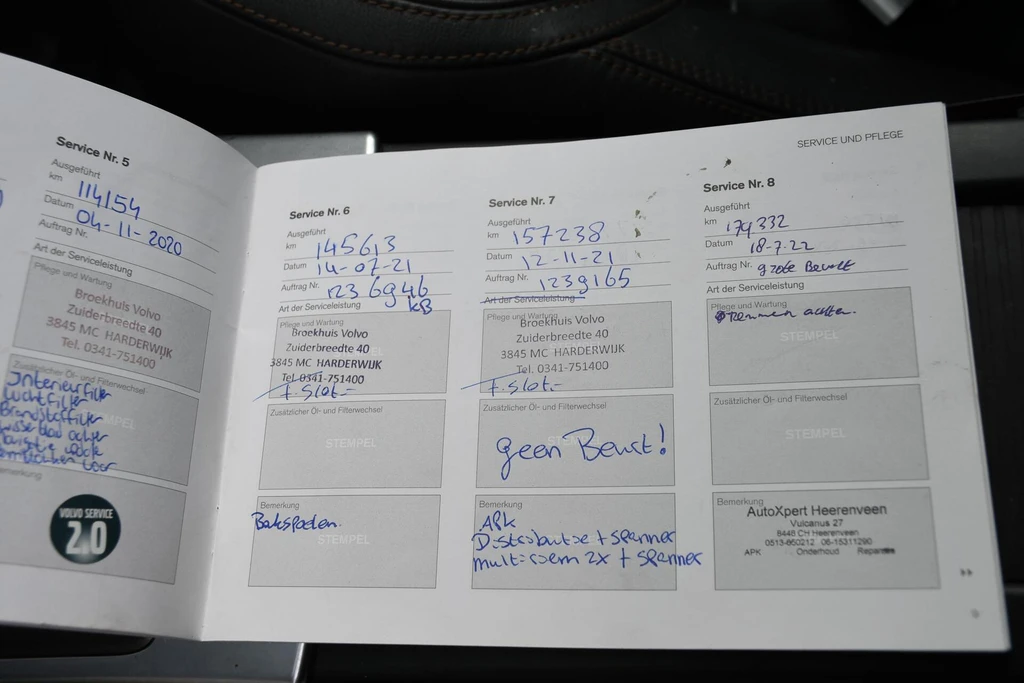 Service Nr. 5
Ausgeführt
km 114154
Datum 04-11-2020
Auftrag Nr.
Art der Serviceleistung
Pflege und Wartung
Broekhuis Volvo
Zuiderbreedte 40
3845 MC HARDERWIJK
Tel. 0341-751400
Zusätzlicher Öl- und Filterwechsel
Interieurfilter
Luchtfilter
Brandstoffilter
VOLVO SERVICE
2.0
Service Nr. 6
Ausgeführt
km 145613
Datum 14-07-21
Auftrag Nr. 1236946
KB
Art der Serviceleistung
Pflege und Wartung
Broekhuis Volvo
Zuiderbreedte 40
3845 MC HARDERWIJK
Tel. 0341-751400
Zusätzlicher Öl- und Filterwechsel
STEMPEL
Bemerkung
STEMPEL
Service Nr. 7
Ausgeführt
km 157238
Datum 12-11-21
Auftrag Nr. 1239165
Art der Serviceleistung
Pflege und Wartung
Broekhuis Volvo
Zuiderbreedte 40
3845 MC HARDERWIJK
Tel. 0341-751400
Zusätzlicher Öl- und Filterwechsel
geen Beurt!
Bemerkung
APK
Distributie + spanner
multiriem 2x + spanner
SERVICE UND PFLEGE
Service Nr. 8
Ausgeführt
km 179332
Datum 18-7-22
Auftrag Nr. grote Beurt
Art der Serviceleistung
Pflege und Wartung
Remmen achter.
STEMPEL
Zusätzlicher Öl- und Filterwechsel
STEMPEL
Bemerkung
AutoXpert Heerenveen
Vulcanus 27
8448 CH Heerenveen
0513-650212 06-15311290
APK Onderhoud Reparatie